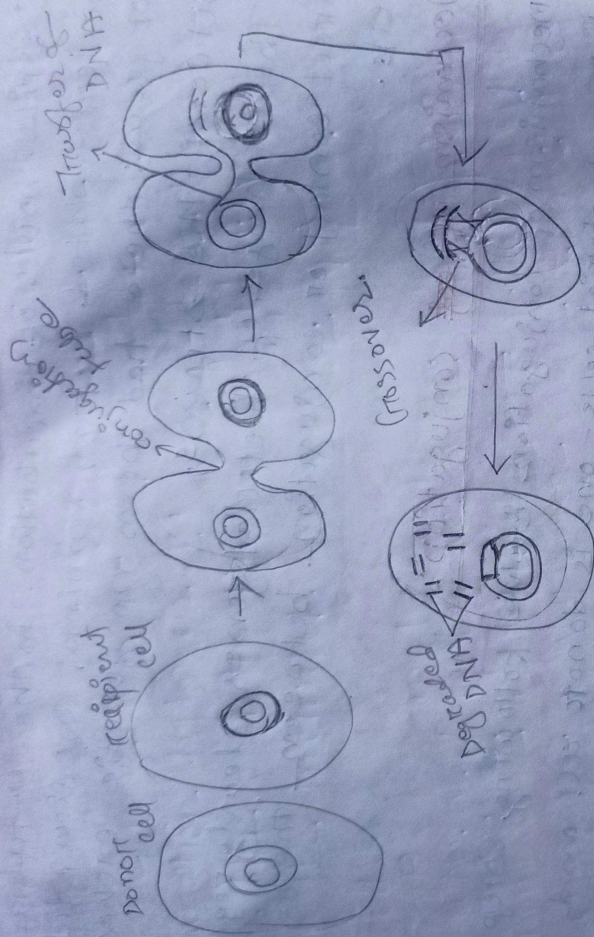 Donor
cell
recipient
cell
conjugation
tube
Transfer of
DNA
Crossover.
Degraded
DNA